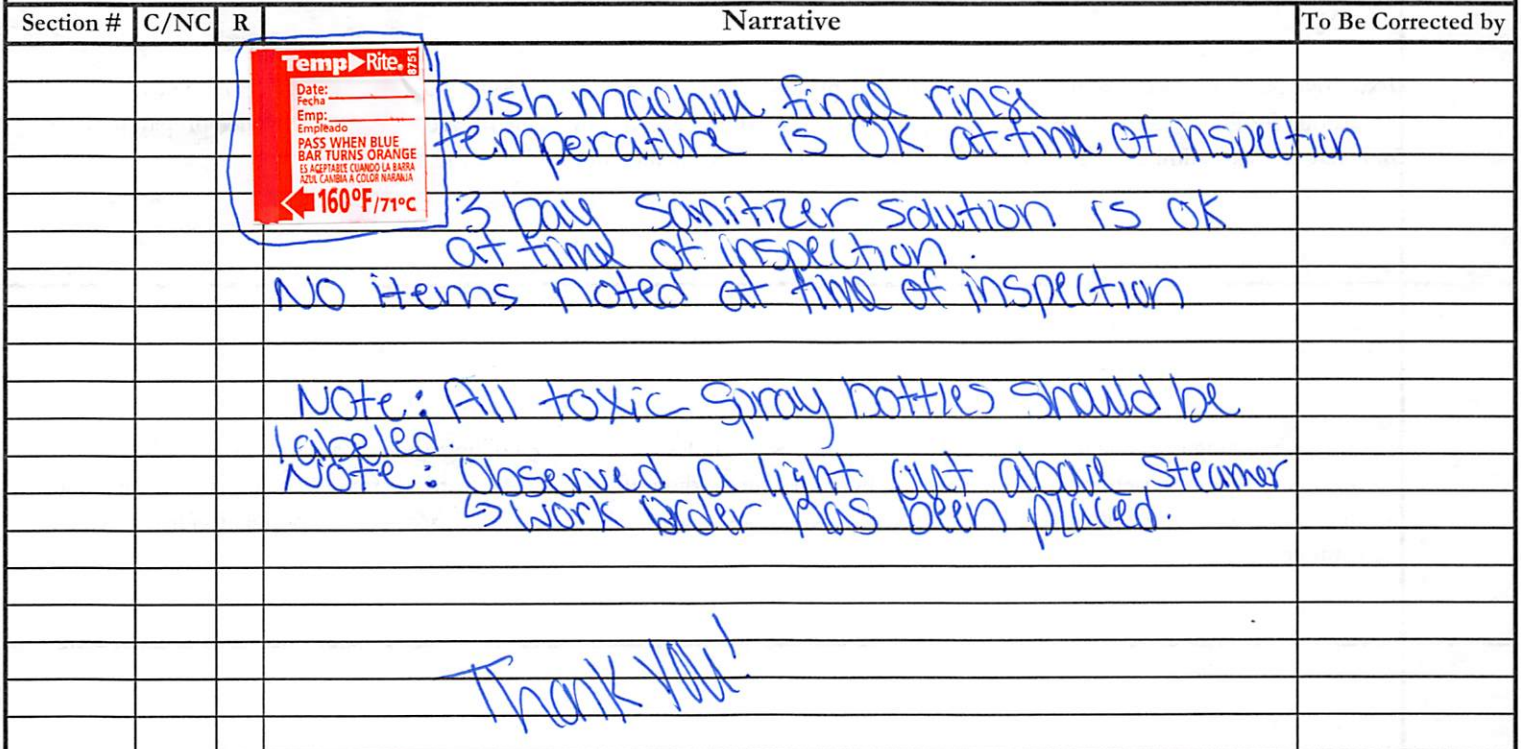 Section # C/NC R Narrative To Be Corrected by
Temp Rite. 8751
Date:
Fecha
Emp:
Empleado
PASS WHEN BLUE
BAR TURNS ORANGE
ES ACEPTABLE CUANDO LA BARRA
AZUL CAMBIA A COLOR NARANJA
160°F/71°C
Dish machine final rinse
temperature is OK at time of inspection
3 bay sanitizer solution is OK
at time of inspection.
NO items noted at time of inspection
Note: All toxic spray bottles should be
labeled.
Note: Observed a light out above steamer
↳ work order has been placed.
Thank you!